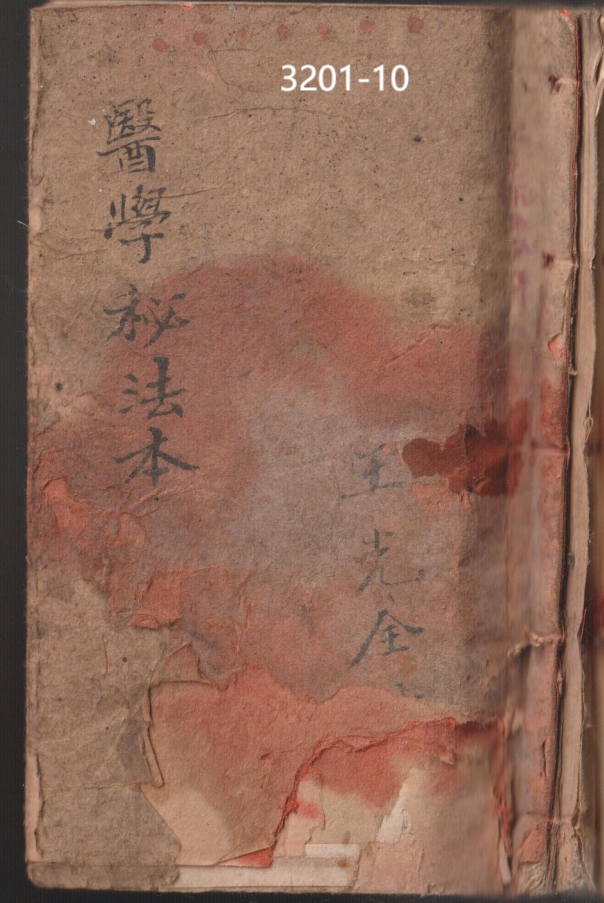 3201-10
醫學秘法本
王光全